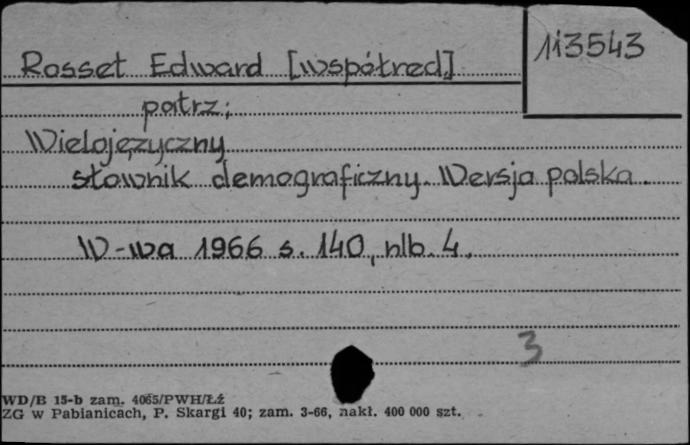 Rosset Edward [współred.]
1i3543
patrz;
Wielojęzyczny
słownik demograficzny. Wersja polska.
W-wa 1966 s. 140, nlb. 4.
3
WD/B 15-b zam. 4065/PWH/Łź
ZG w Pabianicach, P. Skargi 40; zam. 3-66, nakł. 400 000 szt.